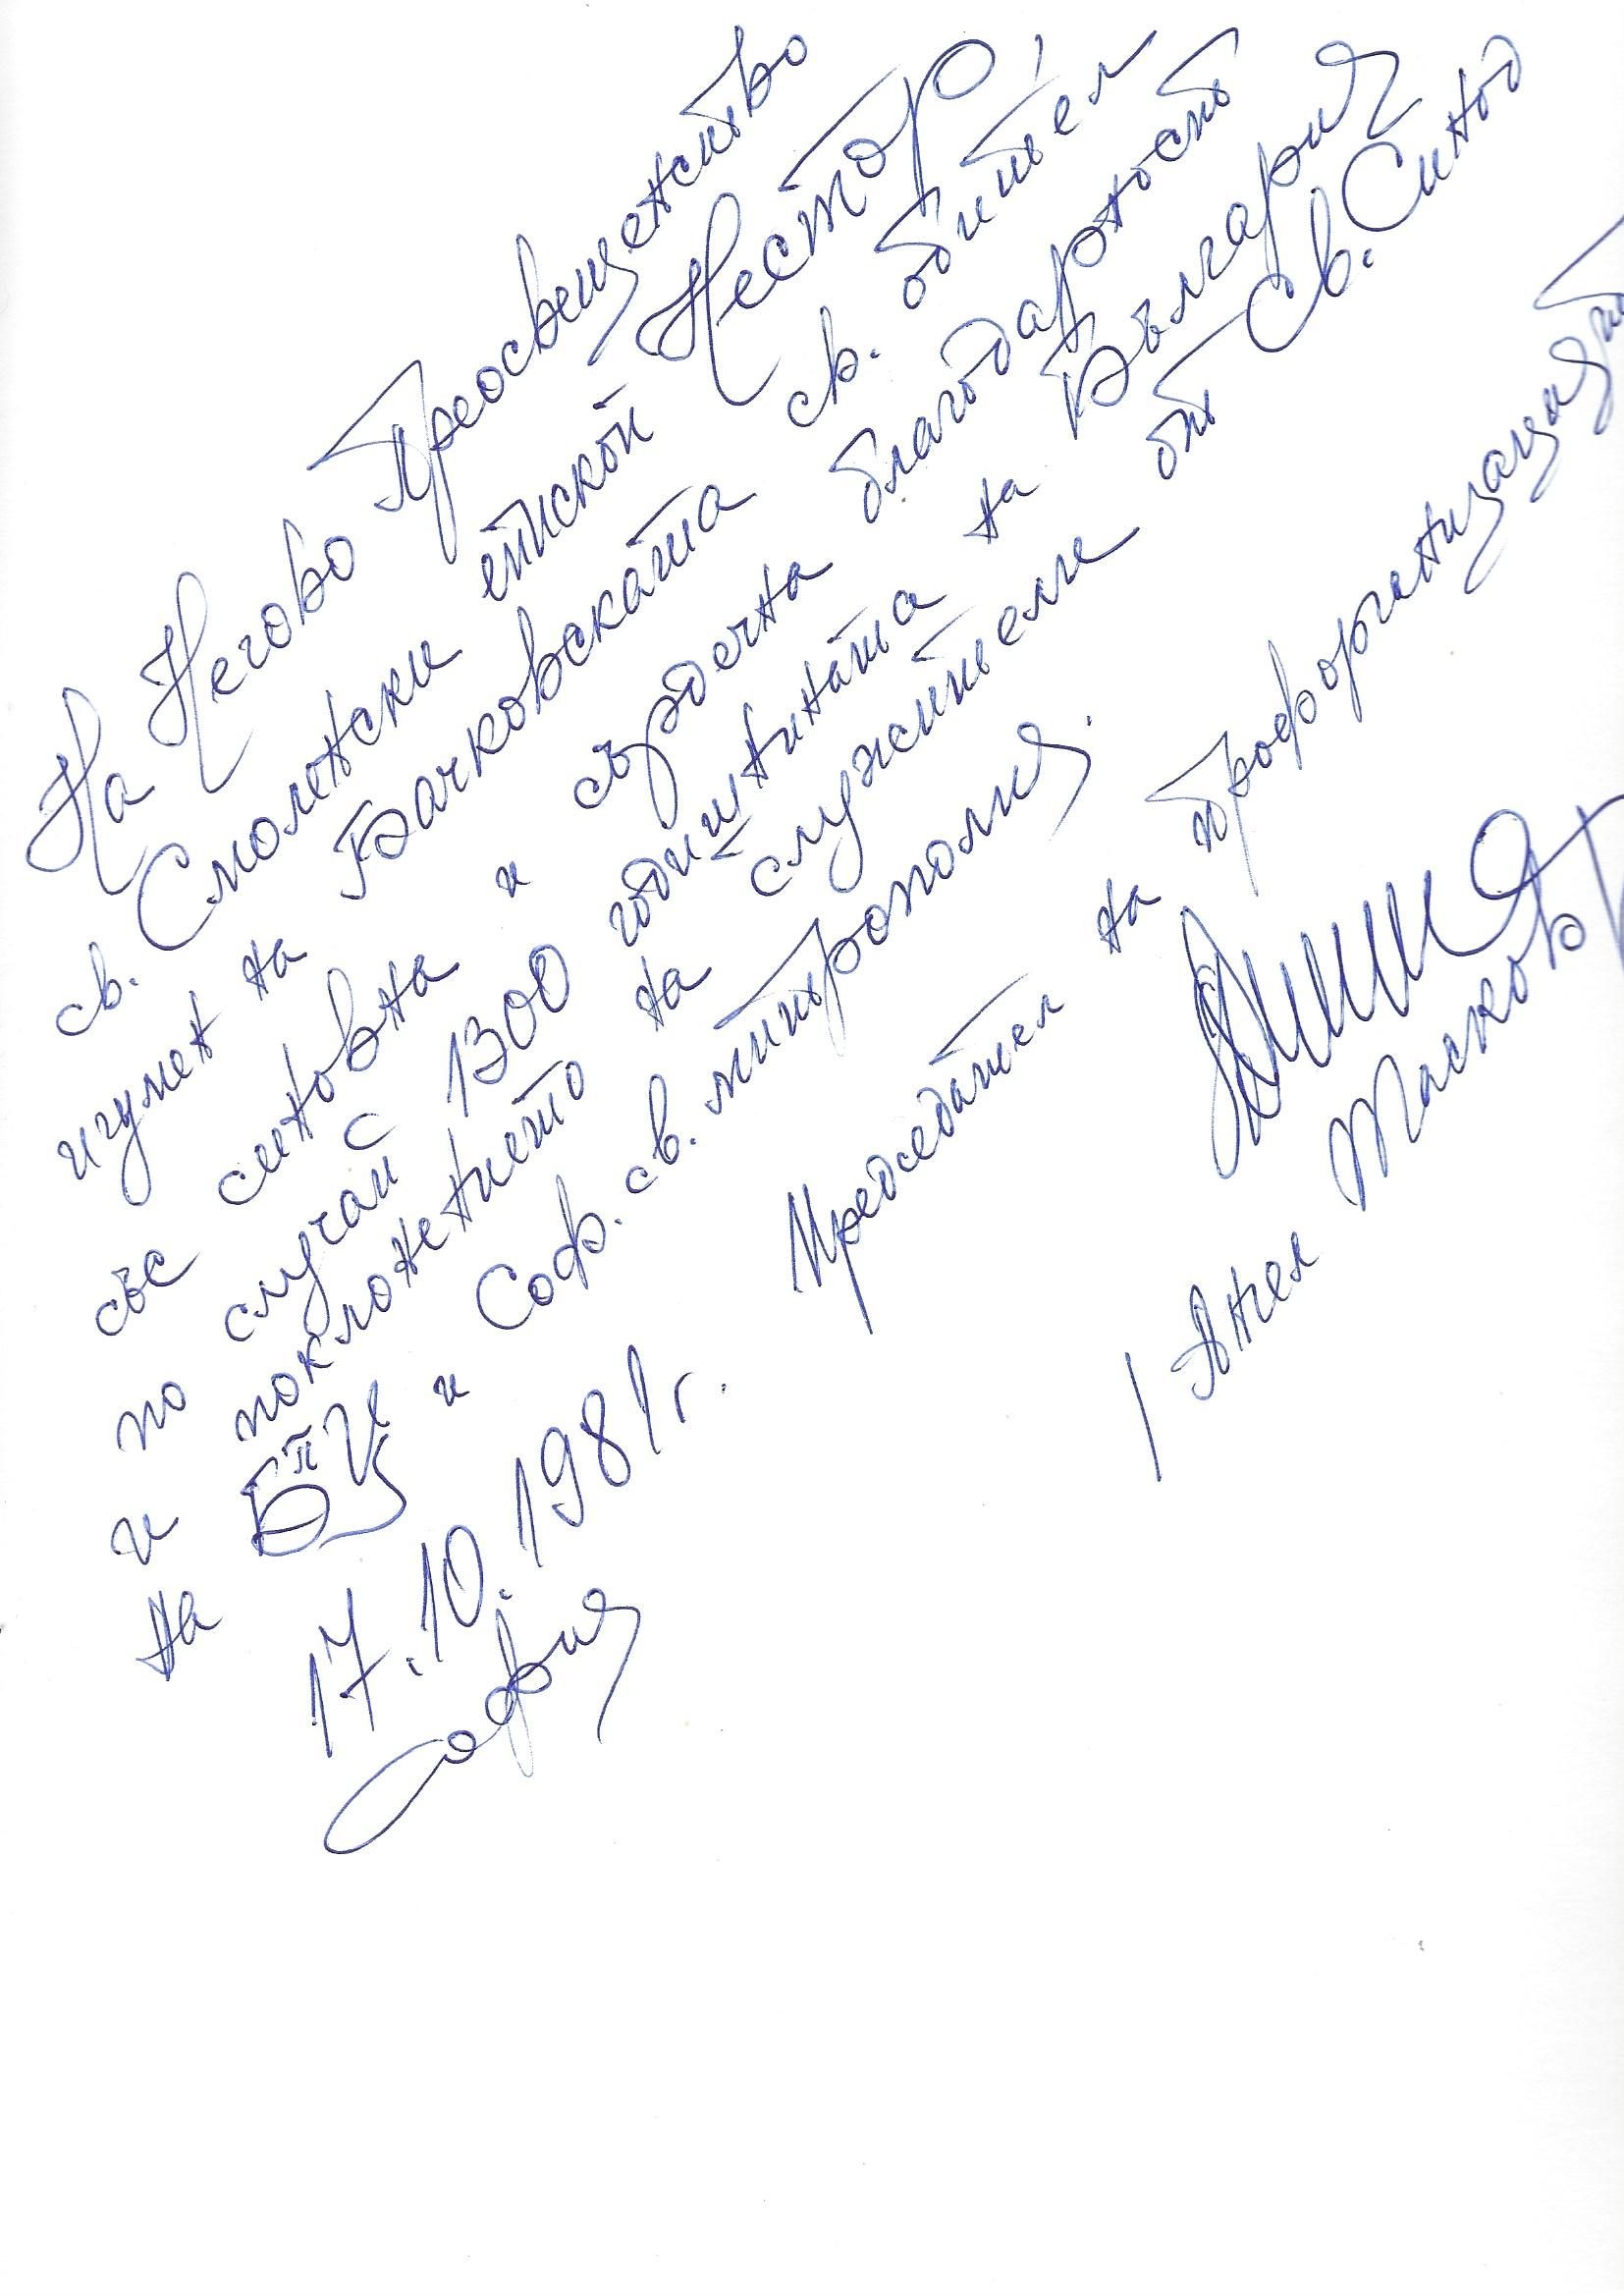 На Негово Преосвещенство
св. Смоленски епископ Нестор,
игумен на Бачковската св. обител
със синовна и сърдечна благодарност
по случай 1300 годишнината на България
и поклонението на служители от Св. Синод
на БПЦ и Соф. св. митрополия.
17.10.1981 г.
София
Председател на профорганизацията
/ Ангел